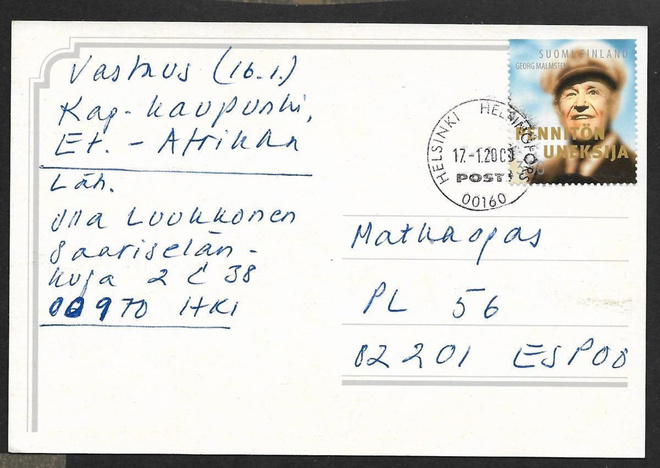 Vastaus (16.1.)
Kap-kaupunki,
Et. - Afrikka
Läh.
Ulla Luukkonen
Saariselän-
kuja 2 C 38
00970 HKI
SUOMI FINLAND
GEORG MALMSTEN
PENNITÖN
UNEKSIJA
HELSINKI HELSINGFORS
17.-1.200
POSTI
00160
Matkaopas
PL 56
02201 ESPOO